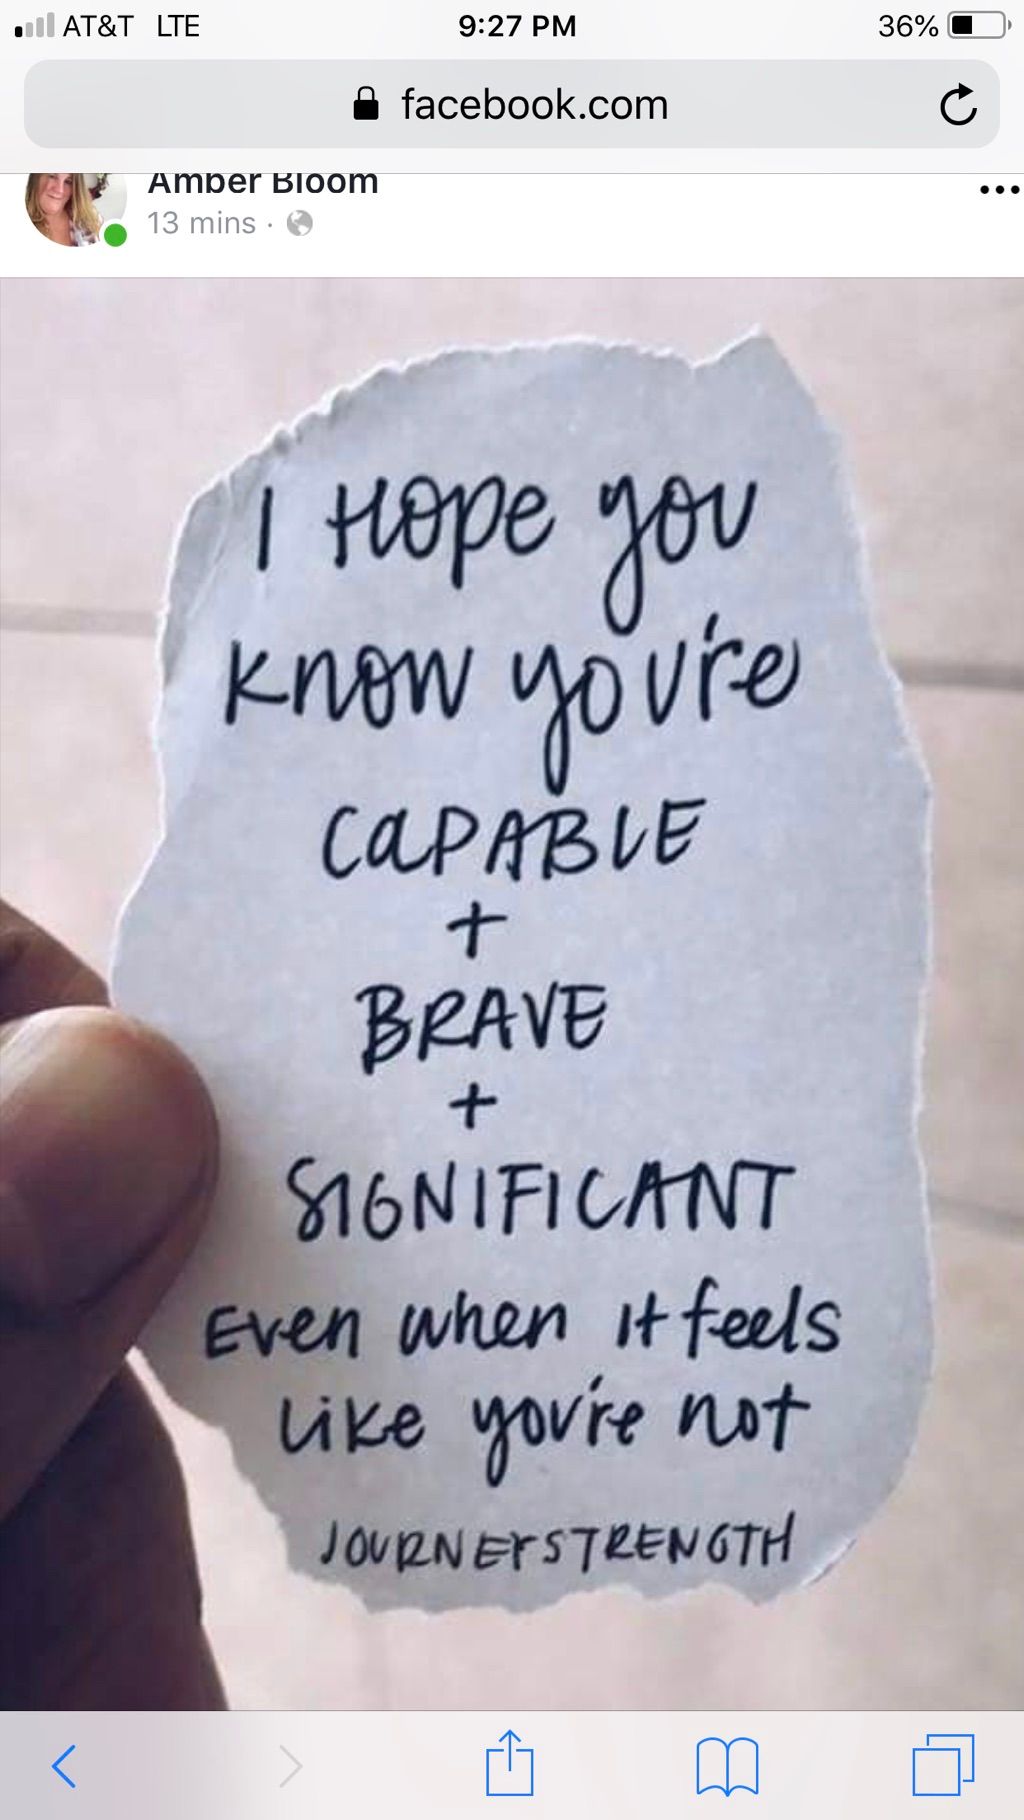 AT&T LTE 9:27 PM 36%
facebook.com
Amber Bloom
13 mins ·
I Hope you
know you're
CaPABLE
+
BRAVE
+
SIGNIFICANT
Even when it feels
like you're not
JOURNEYSTRENGTH